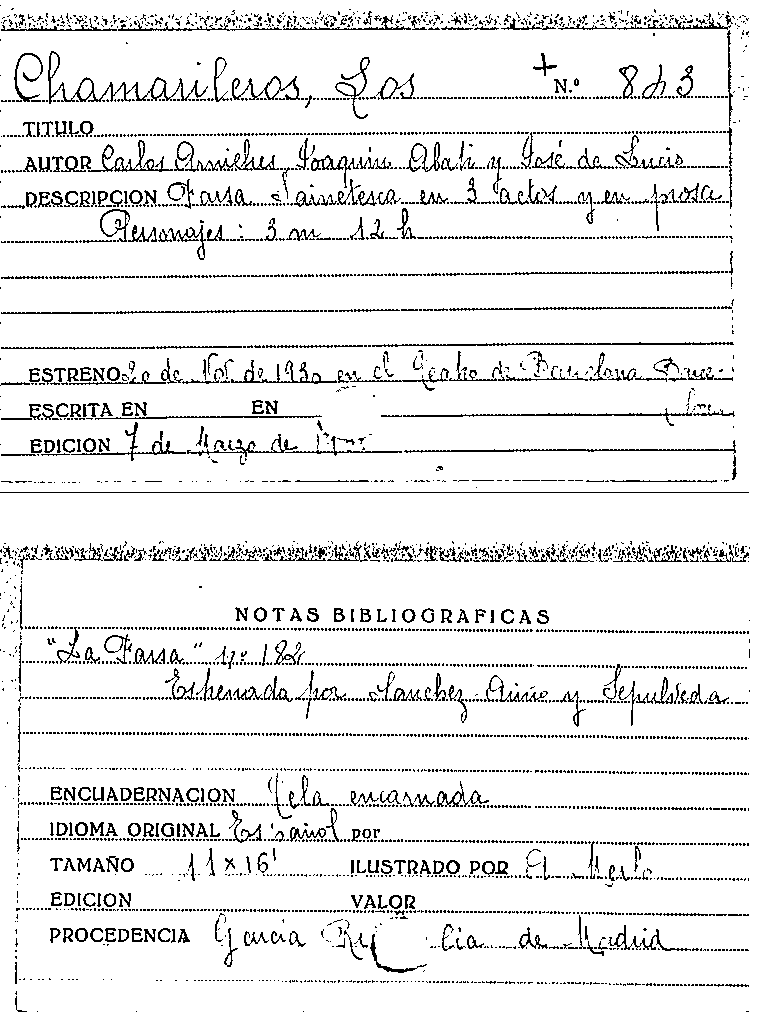 Chamarileros, Los + N.º 843
TITULO
AUTOR Carlos Arniches, Joaquin Abati y José de Lucio
DESCRIPCION Farsa Sainetesca en 3 actos y en prosa
Personajes: 3 m 12 h
ESTRENO 20 de Nov. de 1930 en el Teatro de Barcelona Barce-
lona
ESCRITA EN EN
EDICION 7 de Marzo de
NOTAS BIBLIOGRAFICAS
"La Farsa" nº 182
Estrenada por Sanchez-Ariño y Sepulveda
ENCUADERNACION Tela encarnada
IDIOMA ORIGINAL Español por
TAMAÑO 11 x 16' ILUSTRADO POR A. Merlo
EDICION VALOR
PROCEDENCIA Garcia de Madrid